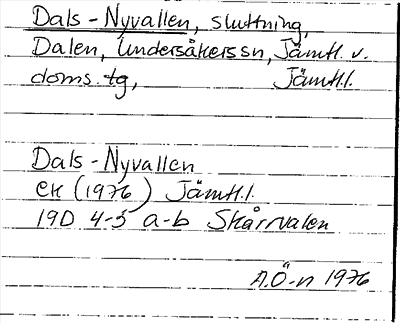 Dals-Nyvallen, sluttning,
Dalen, Undersåkerssn, Jämtl. v.
doms. tg, Jämtl.l.
Dals-Nyvallen
ek (1976) Jämtl.l.
19D 4-5 a-b Skårvalen
A.Ö-n 1976